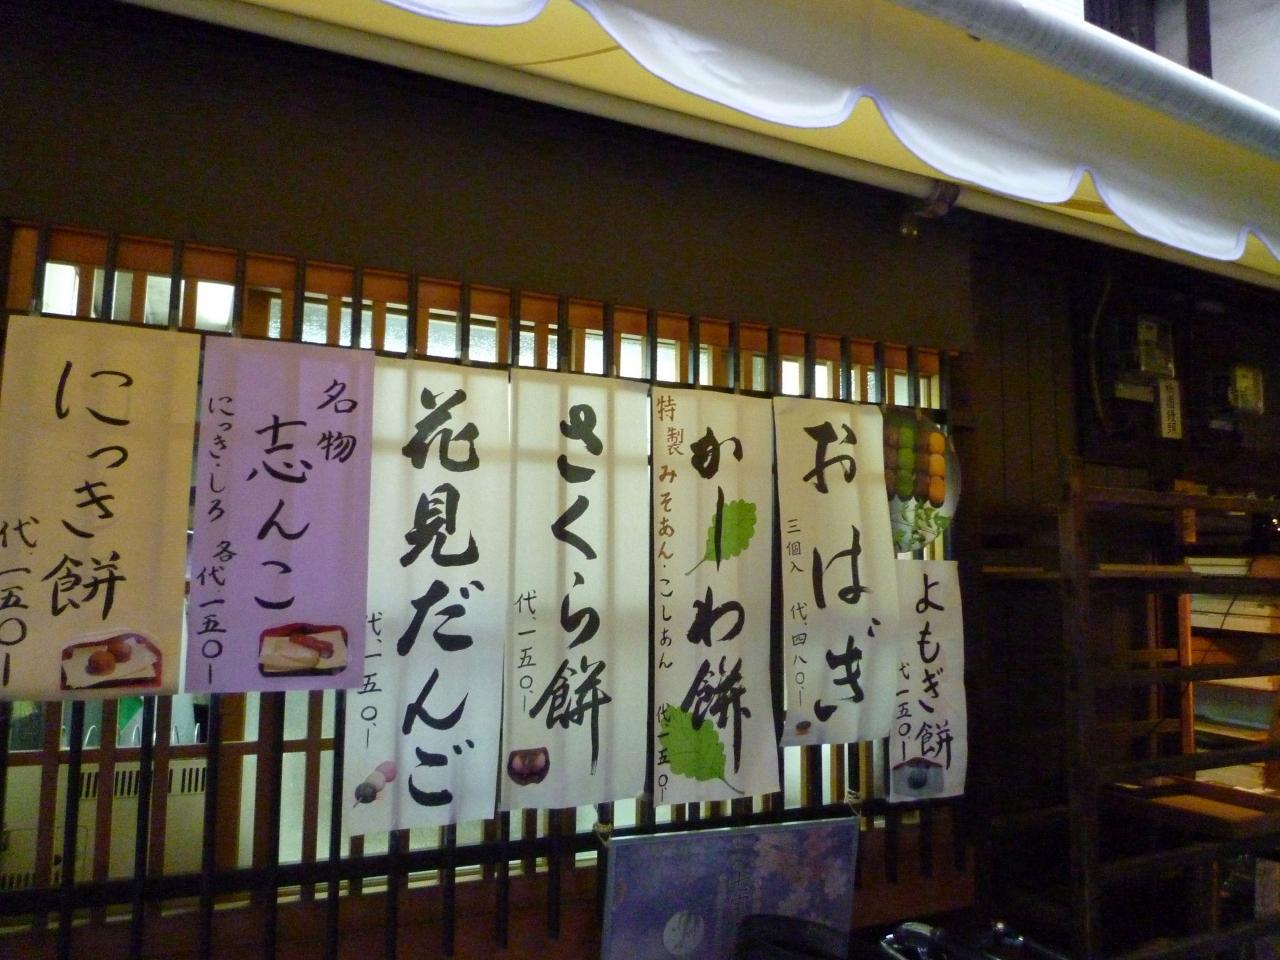 にっき餅
代、一五〇ー
名物
志んこ
にっき・しろ 各代、一五〇ー
花見だんご
代、一五〇、ー
さくら餅
代、一五〇、ー
かーしわ餅
特製みそあん・こしあん 代一五〇ー
おはぎ
三個入 代、四八〇、ー
よもぎ餅
代一五〇ー